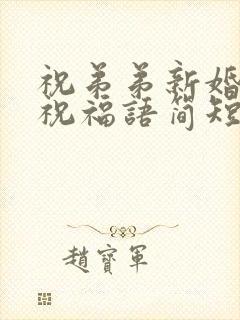 祝弟弟新婚
祝福語简短
趙寶軍